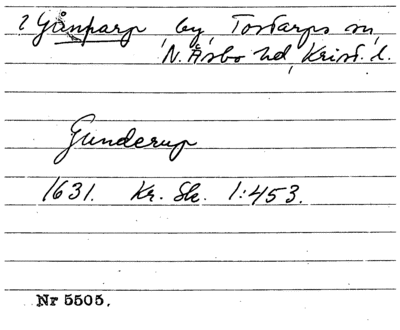 2 Gånarp, by, Tostarps sn,
N. Åsbo hd, Krist. l.
Gunderup
1631. Kr. Sk. 1:453.
Nr 5505.